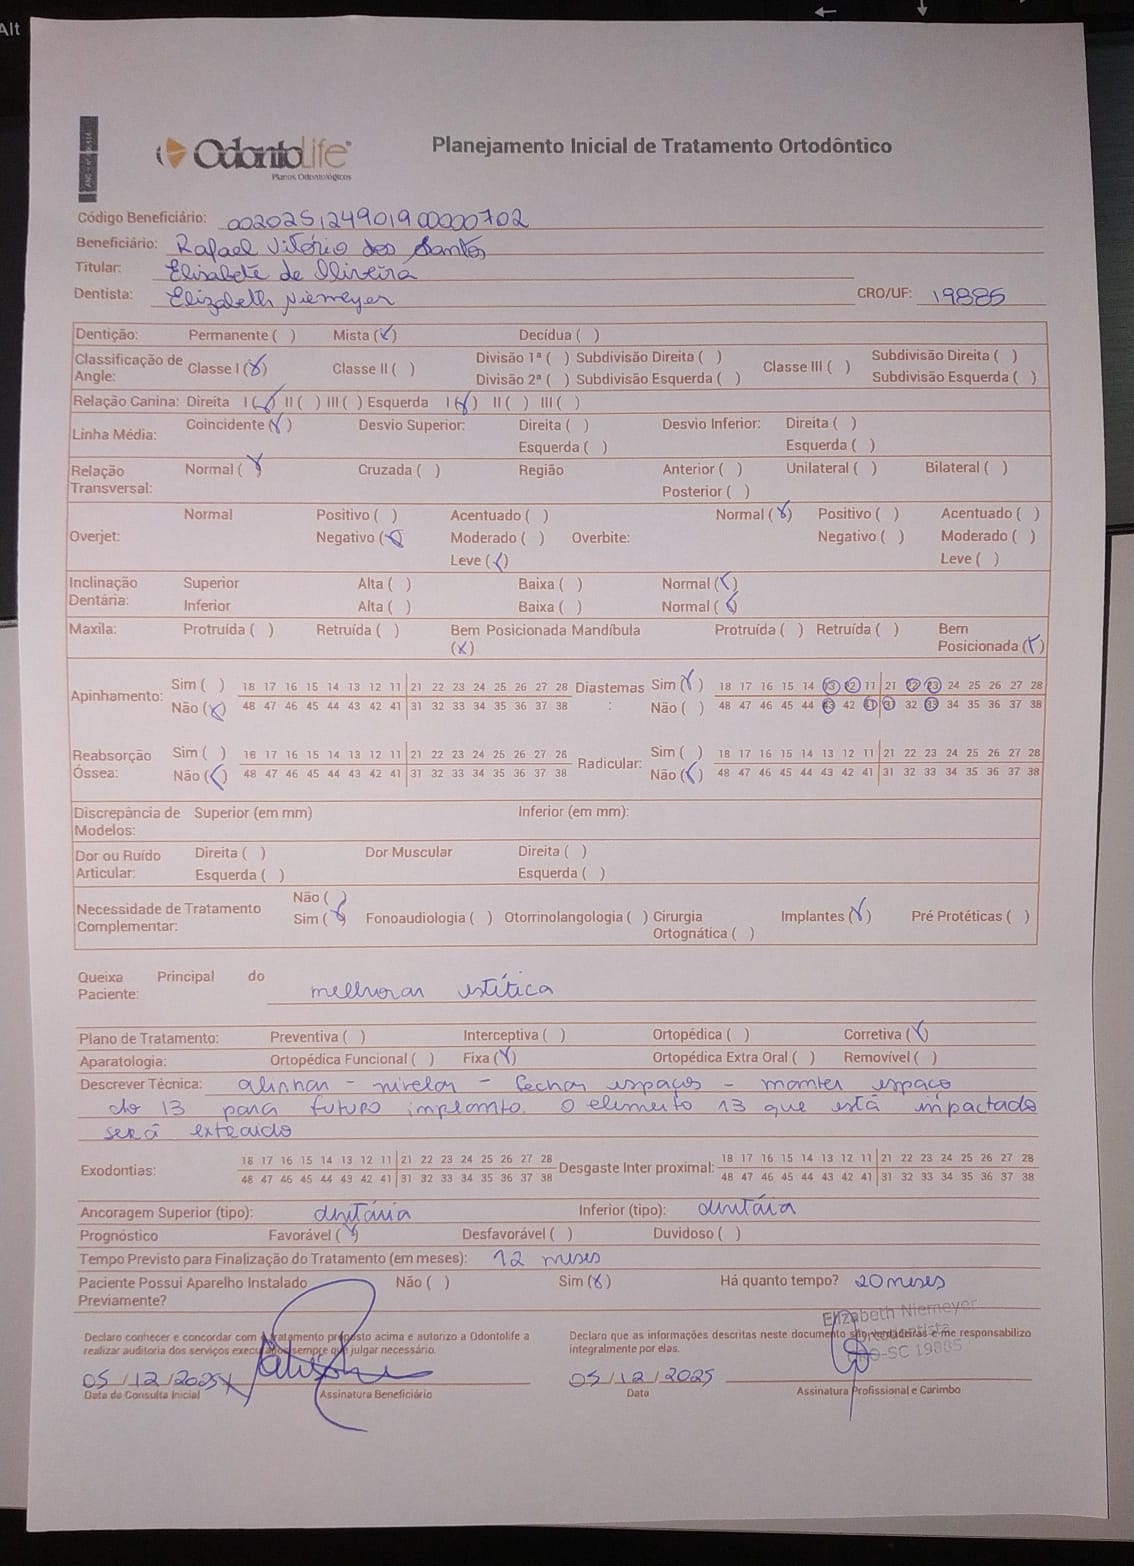 Alt
OdontoLife
Planos Odontológicos
Planejamento Inicial de Tratamento Ortodôntico
Código Beneficiário: 00202512490190000702
Beneficiário: Rafael Vitório dos Santos
Titular: Elisabete de Oliveira
Dentista: Elizabeth Niemeyer CRO/UF: 19885
Dentição: Permanente ( ) Mista (X) Decídua ( )
Classificação de Angle: Classe I (X) Classe II ( ) Divisão 1ª ( ) Subdivisão Direita ( ) Classe III ( ) Subdivisão Direita ( )
Divisão 2ª ( ) Subdivisão Esquerda ( ) Subdivisão Esquerda ( )
Relação Canina: Direita I (X) II ( ) III ( ) Esquerda I (X) II ( ) III ( )
Linha Média: Coincidente (X) Desvio Superior: Direita ( ) Desvio Inferior: Direita ( )
Esquerda ( ) Esquerda ( )
Relação Transversal: Normal (X) Cruzada ( ) Região Anterior ( ) Unilateral ( ) Bilateral ( )
Posterior ( )
Normal Positivo ( ) Acentuado ( ) Normal (X) Positivo ( ) Acentuado ( )
Overjet: Negativo (X) Moderado ( ) Overbite: Negativo ( ) Moderado ( )
Leve (X) Leve ( )
Inclinação Dentária: Superior Alta ( ) Baixa ( ) Normal (X)
Inferior Alta ( ) Baixa ( ) Normal (X)
Maxila: Protruída ( ) Retruída ( ) Bem Posicionada (X) Mandíbula Protruída ( ) Retruída ( ) Bem Posicionada (X)
Apinhamento: Sim ( ) 18 17 16 15 14 13 12 11 21 22 23 24 25 26 27 28 Diastemas: Sim (X) 18 17 16 15 14 13 12 11 21 22 23 24 25 26 27 28
Não (X) 48 47 46 45 44 43 42 41 31 32 33 34 35 36 37 38 Não ( ) 48 47 46 45 44 43 42 41 31 32 33 34 35 36 37 38
Reabsorção Óssea: Sim ( ) 18 17 16 15 14 13 12 11 21 22 23 24 25 26 27 28 Radicular: Sim ( ) 18 17 16 15 14 13 12 11 21 22 23 24 25 26 27 28
Não (X) 48 47 46 45 44 43 42 41 31 32 33 34 35 36 37 38 Não (X) 48 47 46 45 44 43 42 41 31 32 33 34 35 36 37 38
Discrepância de Modelos: Superior (em mm) Inferior (em mm):
Dor ou Ruído Articular: Direita ( ) Dor Muscular Direita ( )
Esquerda ( ) Esquerda ( )
Necessidade de Tratamento Complementar: Não ( )
Sim (X) Fonoaudiologia ( ) Otorrinolangologia ( ) Cirurgia Ortognática ( ) Implantes (X) Pré Protéticas ( )
Queixa Principal do Paciente: melhorar estética
Plano de Tratamento: Preventiva ( ) Interceptiva ( ) Ortopédica ( ) Corretiva (X)
Aparatologia: Ortopédica Funcional ( ) Fixa (X) Ortopédica Extra Oral ( ) Removível ( )
Descrever Técnica: alinhar - nivelar - fechar espaços - manter espaço
do 13 para futuro implante. O elemento 13 que está impactado
será extraido
Exodontias: 18 17 16 15 14 13 12 11 21 22 23 24 25 26 27 28 Desgaste Inter proximal: 18 17 16 15 14 13 12 11 21 22 23 24 25 26 27 28
48 47 46 45 44 43 42 41 31 32 33 34 35 36 37 38 48 47 46 45 44 43 42 41 31 32 33 34 35 36 37 38
Ancoragem Superior (tipo): dentária Inferior (tipo): dentária
Prognóstico Favorável (X) Desfavorável ( ) Duvidoso ( )
Tempo Previsto para Finalização do Tratamento (em meses): 12 meses
Paciente Possui Aparelho Instalado Previamente? Não ( ) Sim (X) Há quanto tempo? 20 meses
Elizabeth Niemeyer
Ortodontista
CRO-SC 19885
Declaro conhecer e concordar com o tratamento proposto acima e autorizo a Odontolife a
realizar auditoria dos serviços executados sempre que julgar necessário.
Declaro que as informações descritas neste documento são verdadeiras e me responsabilizo
integralmente por elas.
05/12/2025 05/12/2025
Data da Consulta Inicial Assinatura Beneficiário Data Assinatura Profissional e Carimbo